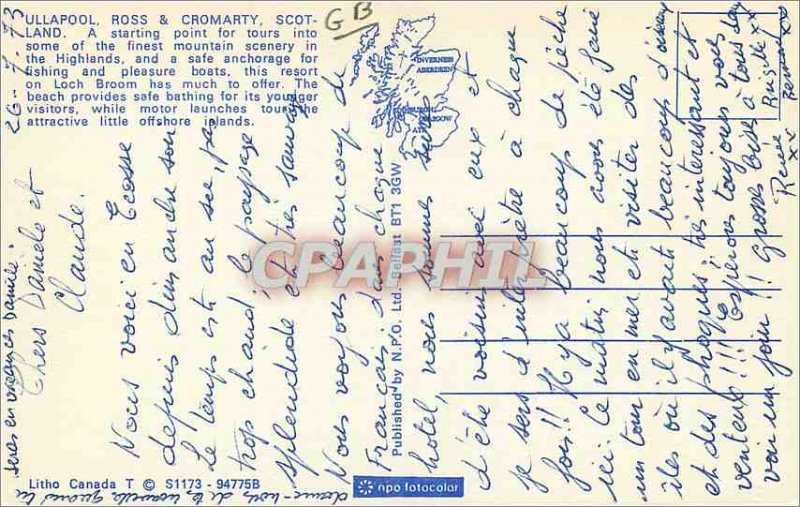 ULLAPOOL, ROSS & CROMARTY, SCOT-
LAND. A starting point for tours into
some of the finest mountain scenery in
the Highlands, and a safe anchorage for
fishing and pleasure boats, this resort
on Loch Broom has much to offer. The
beach provides safe bathing for its younger
visitors, while motor launches tour the
attractive little offshore islands.
GB
INVERNESS
ABERDEEN
EDINBURGH
GLASGOW
26-7-73
Chers Danièle et
Claude.
Nous voici en Ecosse
depuis dimanche soir
le temps est au sec, pas
trop chaud, le paysage
splendide et très sauvage
Nous voyons beaucoup de
Français, dans chaque
hotel, nous sommes surs
d'être voisins avec eux et
je sers d'interprète à chaque
fois!! Il y a beaucoup de pêche
ici. Le matin nous avons été faire
un tour en mer et visiter des
îles où il y avait beaucoup d'oiseaux
et des phoques, très interessant et
venteux!!! Espérons toujours vous
voir un jour!! Grosses bises à tous
Renée Brigitte
xx
Published by N.P.O. Ltd., Belfast BT1 3GW
CPAPHIL
Litho Canada T © S1173 - 94775B
npo fotocolor